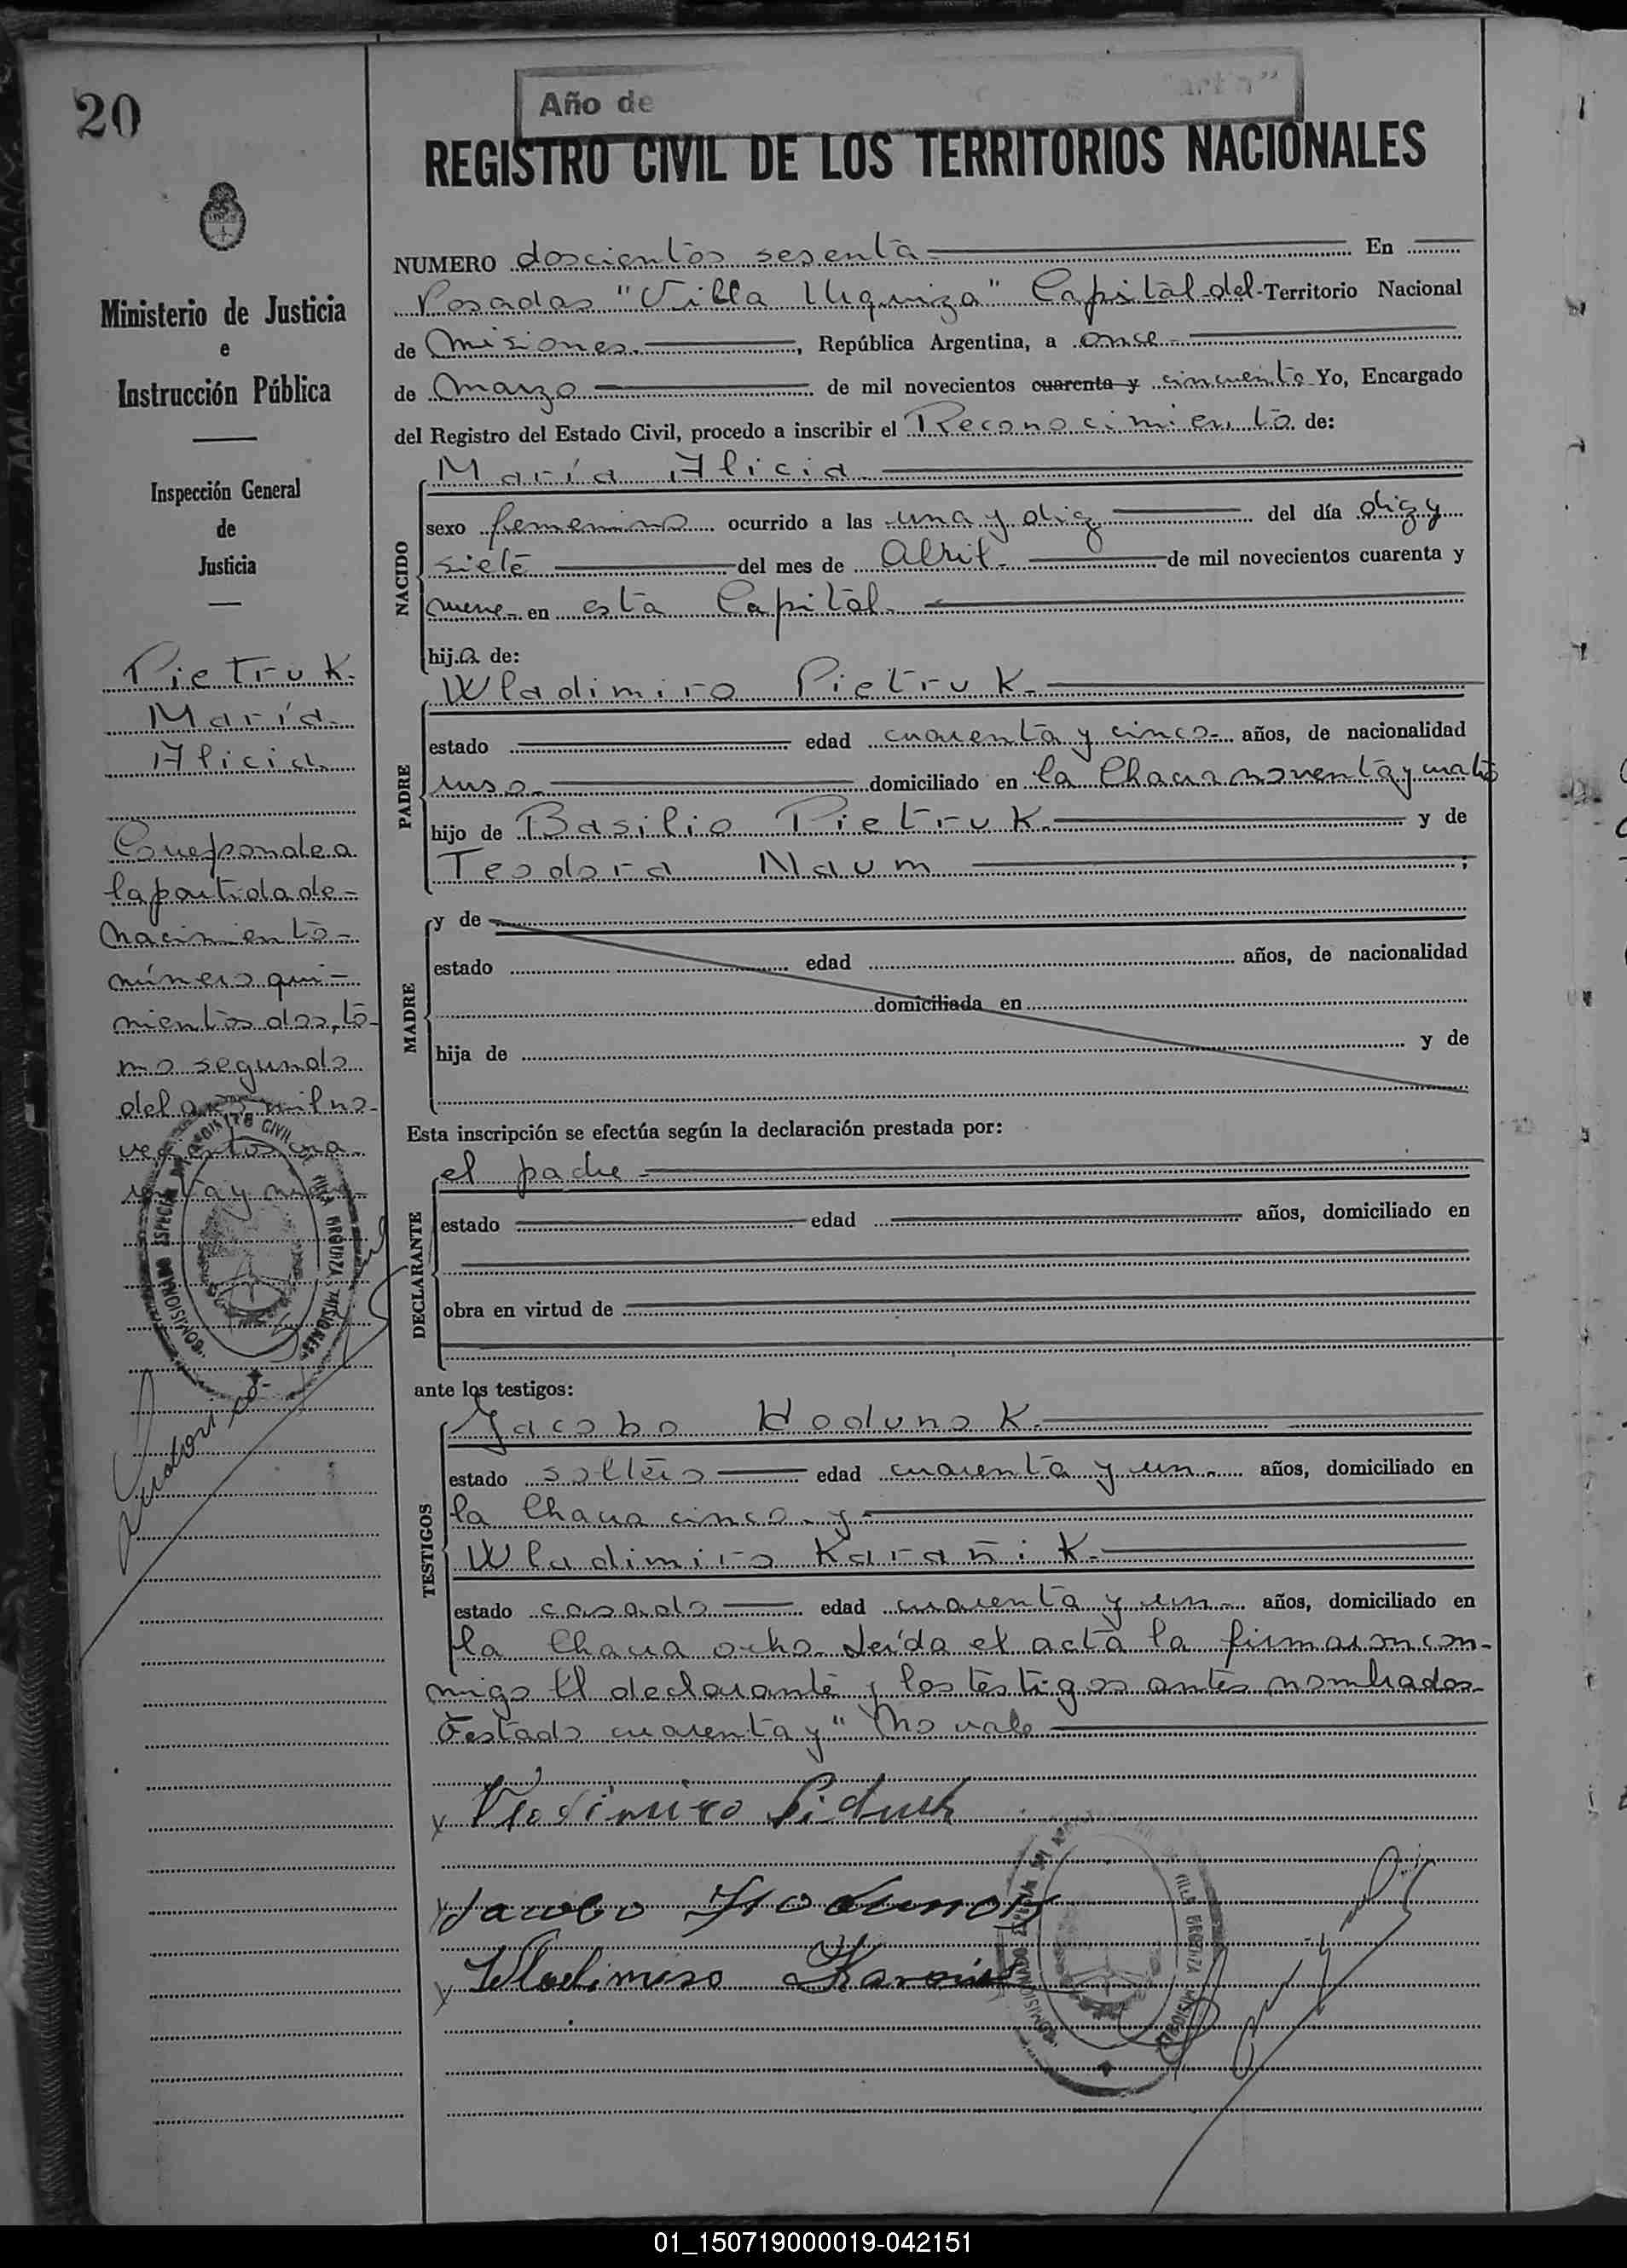 20
Año de
REGISTRO CIVIL DE LOS TERRITORIOS NACIONALES
Ministerio de Justicia
e
Instrucción Pública
Inspección General
de
Justicia
Pietruk
María
Alicia
Corresponde a
la partida de
nacimiento
número qui-
nientos dos, to-
mo segundo
del año mil no-
vecientos cua-
renta y nueve
COMISIONADO ESPECIAL DEL REGISTRO CIVIL VILLA URQUIZA MISIONES
NUMERO doscientos sesenta En
Posadas "Villa Urquiza" Capital del Territorio Nacional
de Misiones, República Argentina, a once
de Marzo de mil novecientos cuarenta y cincuenta Yo, Encargado
del Registro del Estado Civil, procedo a inscribir el Reconocimiento de:
María Alicia
NACIDO
sexo femenino ocurrido a las una y diez del día diez y
siete del mes de Abril de mil novecientos cuarenta y
nueve en esta Capital
hija de:
Wladimiro Pietruk
PADRE
estado edad cuarenta y cinco años, de nacionalidad
ruso domiciliado en la Chacra noventa y cuatro
hijo de Basilio Pietruk y de
Teodora Naum ;
MADRE
y de
estado edad años, de nacionalidad
domiciliada en
hija de y de
Esta inscripción se efectúa según la declaración prestada por:
el padre
DECLARANTE
estado edad años, domiciliado en
obra en virtud de
ante los testigos:
TESTIGOS
Jacobo Hodunok
estado soltero edad cuarenta y un años, domiciliado en
la Chacra cinco y
Wladimiro Karañik
estado casado edad cuarenta y un años, domiciliado en
la Chacra ocho. Leída el acta la firmaron con-
migo El declarante y los testigos antes nombrados
Testado cuarenta y" No vale
Jacobo Hodunok
Wladimiro
COMISIONADO ESPECIAL DEL VILLA URQUIZA MISIONES
01_150719000019-042151